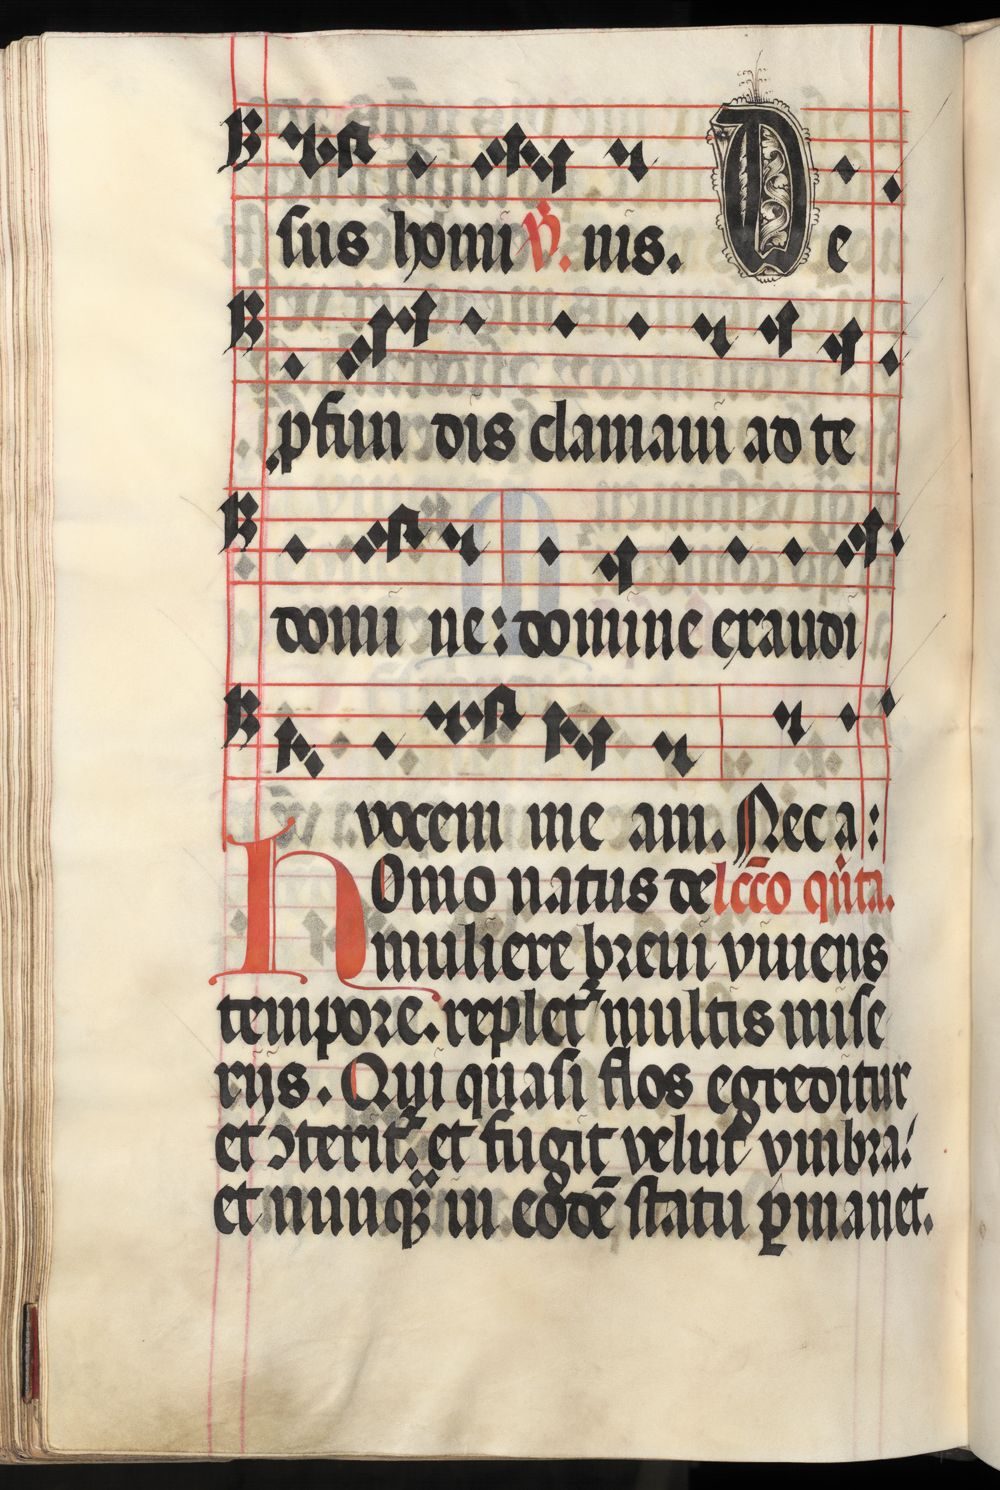 sus homi V. nis. De
pfun dis clamaui ad te
domi ne: domine exaudi
vocem me am. Nec a:
Homo natus de lcc̄o qi̇ta.
muliere breui viuens
tempore. replet᷑ multis mise
rijs. Qui quasi flos egreditur
et ꝯterit᷑. et fugit velut vmbra:
et nunqꝫ in eodē statu ꝑmanet.